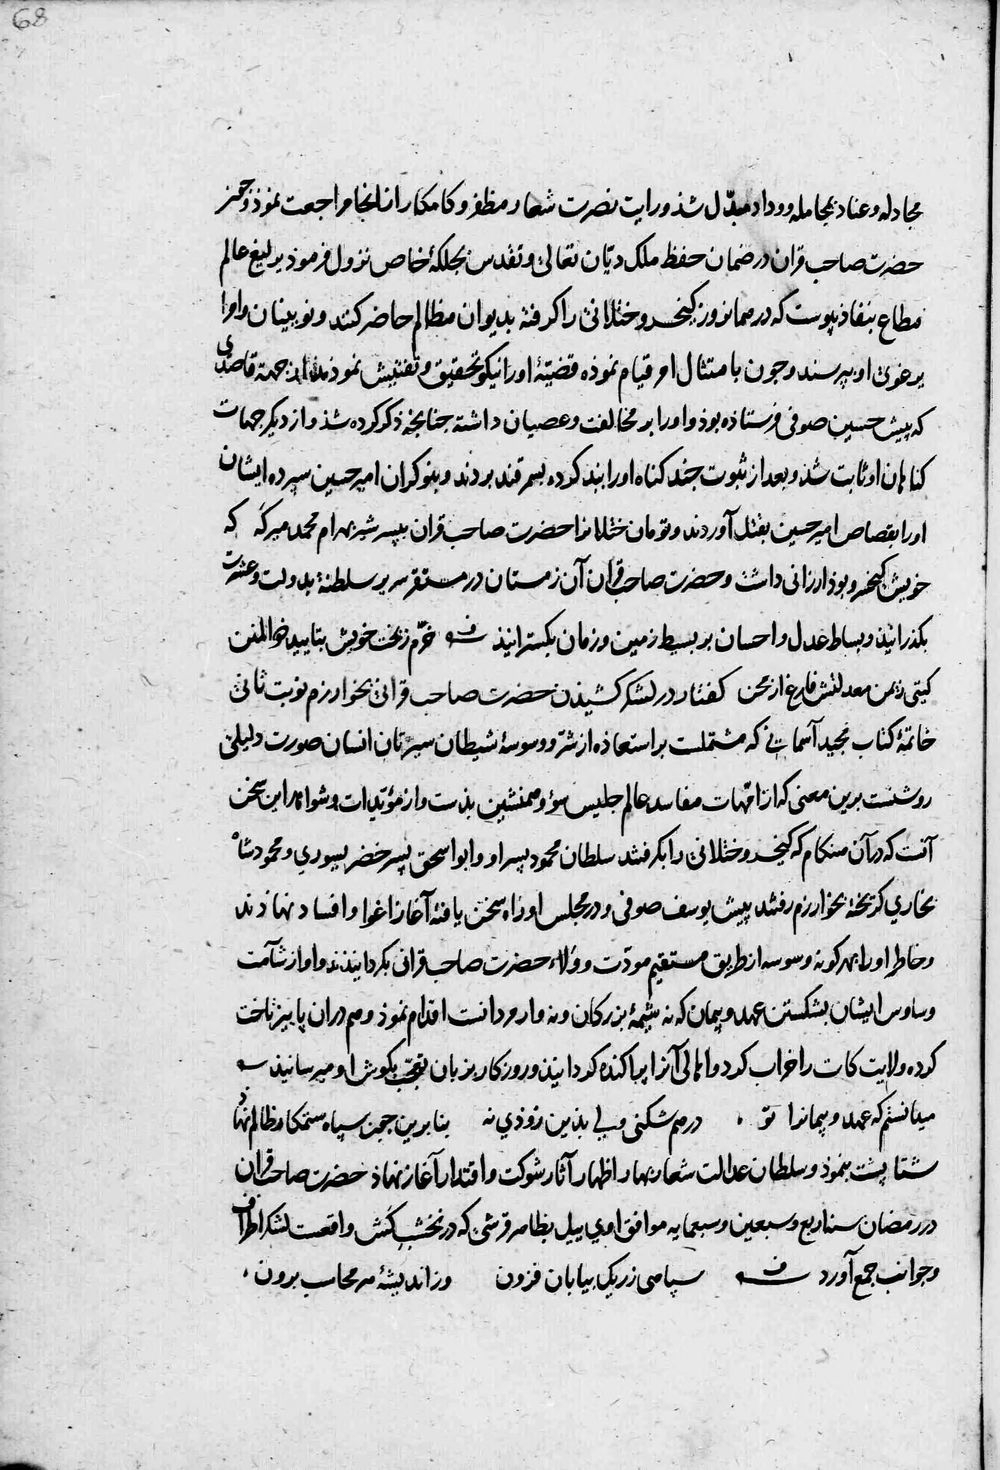 68
مجادله وعناد بمجامله ووداد مبدّل شذ ورایت نصرت شعار مظفر وکامکار ازانجا مراجعت نموذ وجون
حضرت صاحب قران در ضمان حفظ ملک دیّان تعالی وتقدس بجلکهٔ خاص نزول فرموذ یرلیغ عالم
مطاع بنفاذ پیوست که در همانروز کیخسرو ختلانی را کرفته بدیوان مظالم حاضر کنند ونوینان وامرا
یرغوی او بپرسند وجون بامتثال امر قیام نموذه قضیّهٔ اورا نیکو تحقیق وتفتیش نموذند از جهة قاصدی
که پیش حسین صوفی فرستاذه بوذ واورا بر مخالفت وعصیان داشته جنانجه ذکر کرده شذ واز دیکر جهات
کناهان او ثابت شد وبعد از ثبوت جند کناه اورا بند کرده بسمرقند بردند وبنوکران امیر حسین سپرده ایشان
اورا بقصاص امیر حسین بقتل آوردند وتومان ختلانرا حضرت صاحب قران بپسر شیر بهرام محمد میرکه که
خویش کیخسرو بوذ ارزانی داشت وحضرت صاحب قران آن زمستان در مستقر سریر سلطنة بدولت وعشرت
بکذرانیذ وبساط عدل واحسان بر بسیط زمین وزمان بکسترانیذ خرّم زبخت خویش بتایید ذو المنن
کیتی زیمن معدلتش فارغ از محن کفتار در لشکر کشیذن حضرت صاحب قرانی بخوارزم نوبت ثانی
خاتمهٔ کتاب مجید آسمانی که مشتملست بر استعاذه از شرّ ووسوسهٔ شیطان سیرتان انسان صورت دلیلی
روشنست برین معنی که از امّهات مفاسد عالم جلیس سوء وهمنشین بذست واز مؤیّدات وشواهد این سخن
آنست که در آن هنکام که کیخسرو ختلانی را بکرفتند سلطان محمود پسر او وابو اسحق پسر خضر یسوری ومحمود شاه
بخاری کریخته بخوارزم رفتند پیش یوسف صوفی ودر مجلس او راه سخن یافته آغاز اغوا وافساد نهاذند
وخاطر اورا بهر کونه وسوسه از طریق مستقیم موذّت وولاء حضرت صاحب قرانی بکردانیذند واو از شآمت
وساوس ایشان بشکستن عهد وپیمان که نه شیمهٔ بزرکان ونه وارد دانست اقدام نموذ وهم دران پاییز تاخت
کرده ولایت کات را خراب کرد واهالی آنرا پراکنده کردانیذ وروزکار بزبان تعجّب بکوش او میرسانیذ
میدانستم که عهد وپیمانرا تو درهم شکنی ولی بذین زوذی نه بنابرین جون سپاه ستمکار ظالم نهاذ
شتا پشت بنموذ وسلطان عدالت شعار بهار اظهار آثار شوکت واقتدار آغاز نهاذ حضرت صاحب قران
در رمضان سنهٔ اربع وسبعین وسبعمایه موافق اودی ییل بظاهر قرشی که در نخشب کش واقعست لشکر اطراف
وجوانب جمع آورد سپاهی زریک بیابان فزون وز اندیشهٔ هر محاسب برون